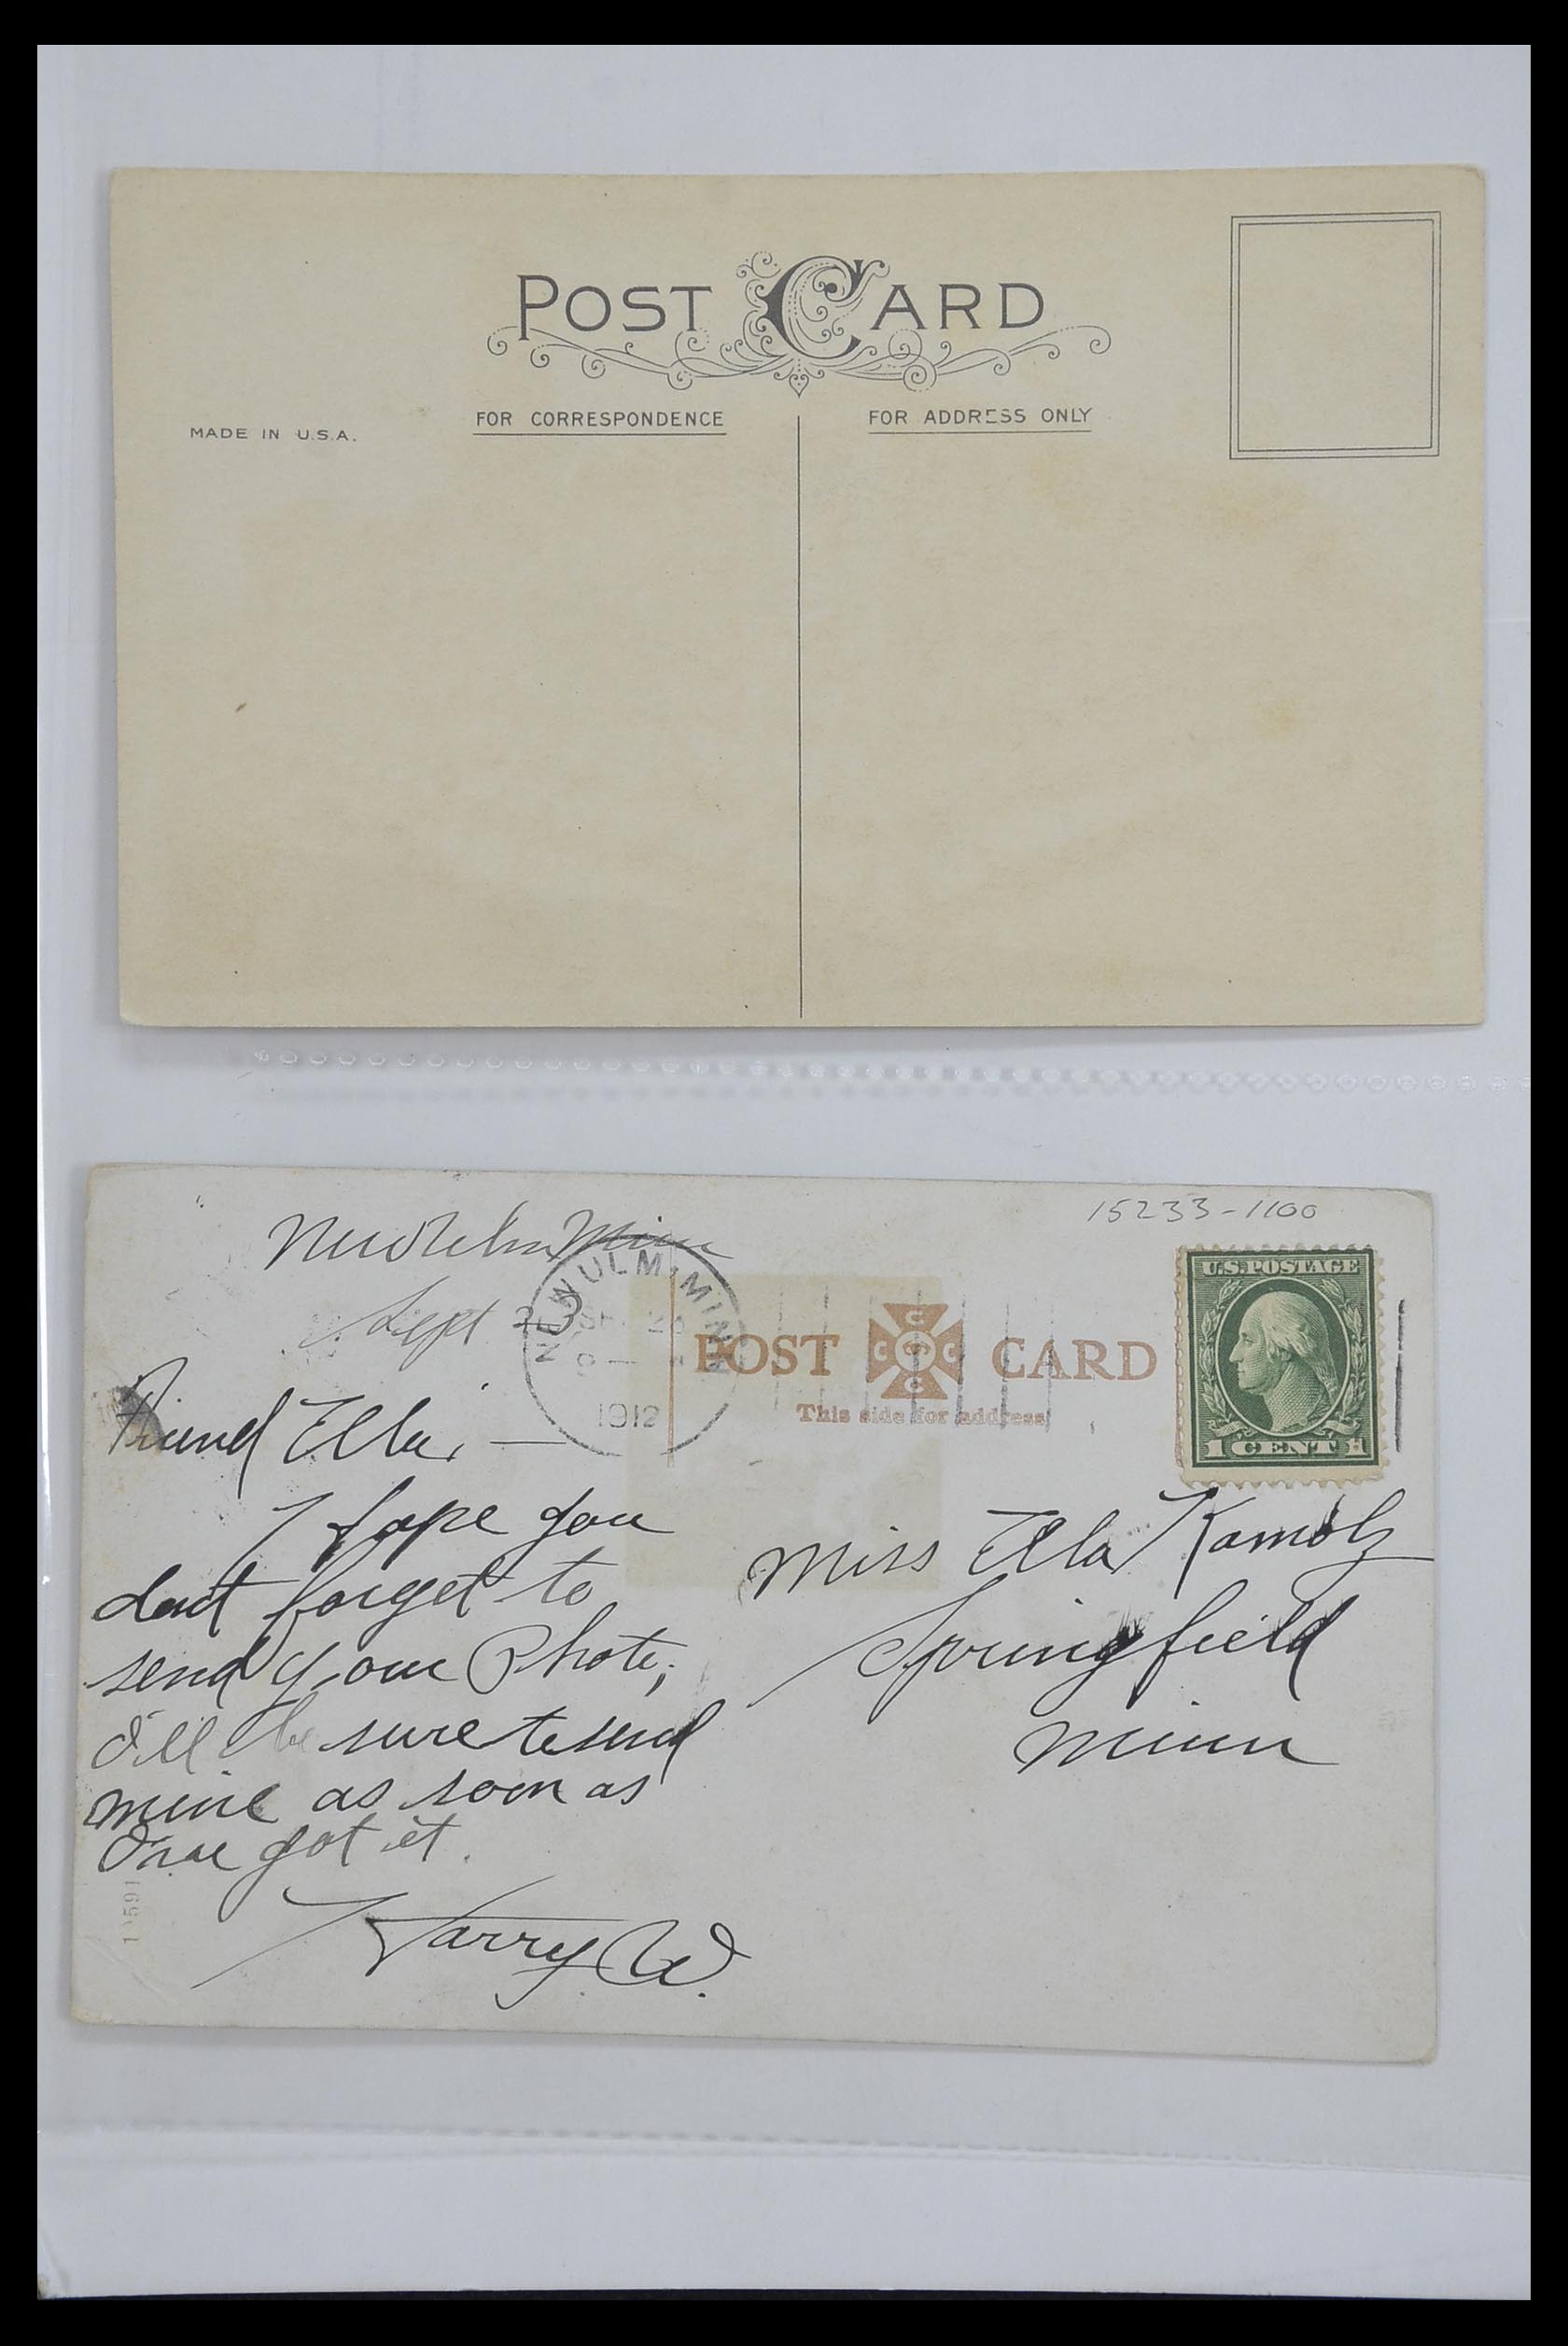 POST CARD
MADE IN U.S.A.
FOR CORRESPONDENCE
FOR ADDRESS ONLY
15233-1100
New Ulm Minn
Sept
NEW ULM, MINN
1912
POST CARD
This side for address
U.S. POSTAGE
1 CENT 1
Friend Ella, —
I hope you
dont forget to
send your Photo;
I'll be sure to send
mine as soon as
I've got it.
Harry W.
Miss Ella Kamolz
Springfield
Minn